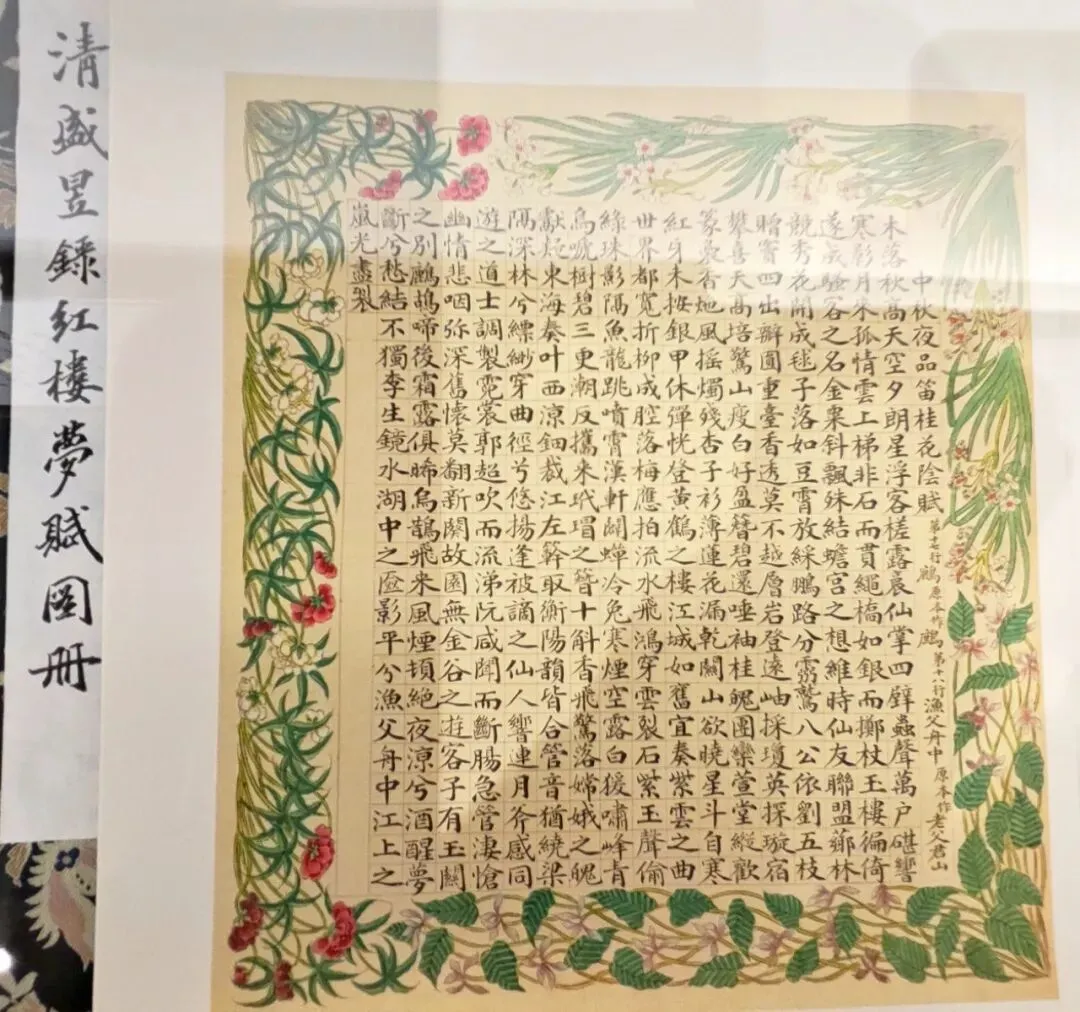 清盛昱錄紅樓夢賦圖冊
中秋夜品笛桂花陰賦 原本作 第十一行漁父舟中原本作老父君山
木落秋高天空夕朗星浮客槎露裛仙掌四壁蟲聲萬戶碪響
寒影月來孤情雲上梯非石而貫繩橋如銀而擲杖玉樓徧倚
遂成騷客之名金粟斜飄殊結蟾宮之想維時仙友聯盟薌林
競秀花開成毬子落如豆霄放綵鵬路分鷲八公依劉五枝
贈竇四出瓣圓重臺香透莫不越層岩登遠岫採瓊英探璇宿
攀喜天高培驚山瘦白好盈簪碧還唾袖桂魄團欒萱堂縱歡
篆裊香灺風搖燭殘杏子衫薄蓮花漏乾關山欲曉星斗自寒
紅牙未按銀甲休彈恍登黃鶴之樓江城如舊宜奏紫雲之曲
世界都寬折柳成腔落梅應拍流水飛鴻穿雲裂石紫玉聲偷
綠珠影隔魚龍跳噴霄漢軒闢蟬冷兔寒煙空露白猨嘯峰青
烏嗁樹碧三更潮反攜來玳瑁之簪十斛香飛驚落嫦娥之魄
獻從東海奏叶西涼鈿截江左簳取衡陽韻皆合管音猶繞梁
隔深林兮縹緲穿曲徑兮悠揚逢被謫之仙人響連月斧感同
遊之道士調製霓裳郭超吹而流涕阮咸聞而斷腸急管淒愴
幽情悲咽弥深舊懷莫翻新闋故園無金谷之遊客子有玉關
之別鷓鴣啼後霜露俱晞烏鵲飛來風煙頓絕夜涼兮酒醒夢
斷兮愁結不獨李生鏡水湖中之匳影平兮漁父舟中江上之
嵐光盡裂